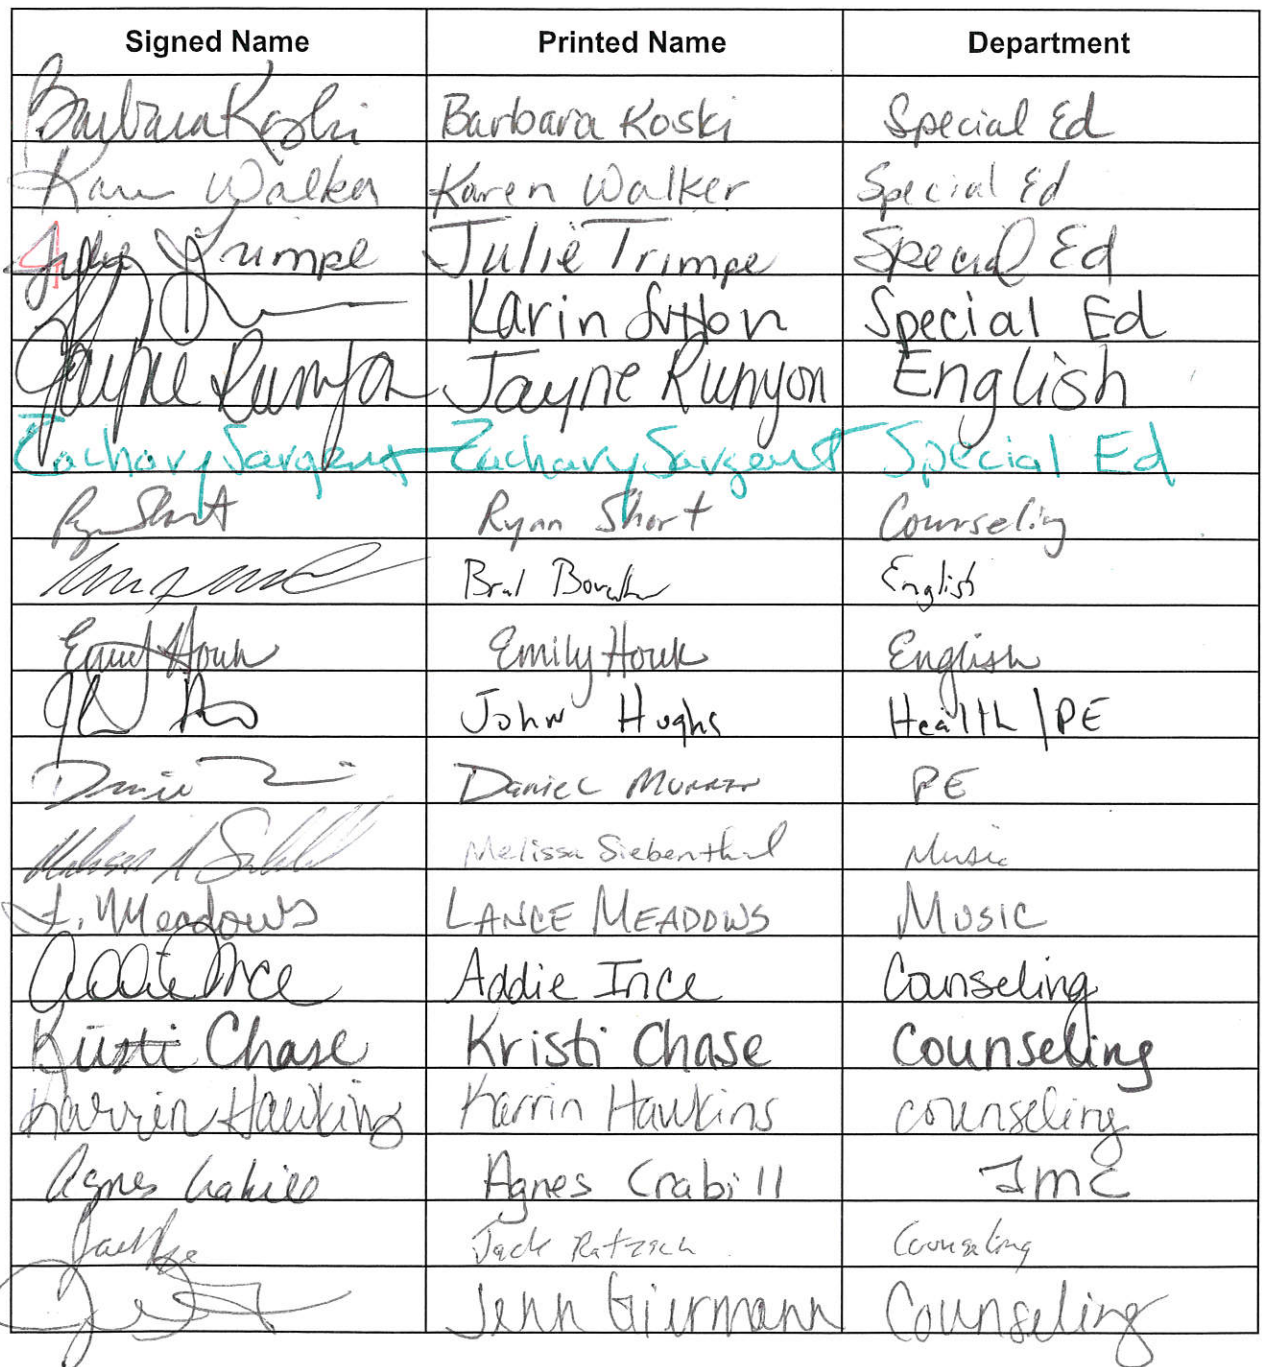 Signed Name Printed Name Department
Barbara Koski Barbara Koski Special Ed
Karen Walker Karen Walker Special Ed
Julie Trimpe Julie Trimpe Special Ed
Karin Sutton Special Ed
Jayne Runyon Jayne Runyon English
Zachary Sargent Zachary Sargent Special Ed
Ryan Short Ryan Short Counseling
English
Emily Houk Emily Houk English
John Hughs Health/PE
Daniel PE
Melissa Siebenthal Music
L. Meadows LANCE MEADOWS MUSIC
Addie Ince Addie Ince Counseling
Kristi Chase Kristi Chase Counseling
Karrin Hawkins Karrin Hawkins counseling
Agnes Crabill Agnes Crabill IMC
Jack Ratzsch Counseling
Jenn Giermann Counseling